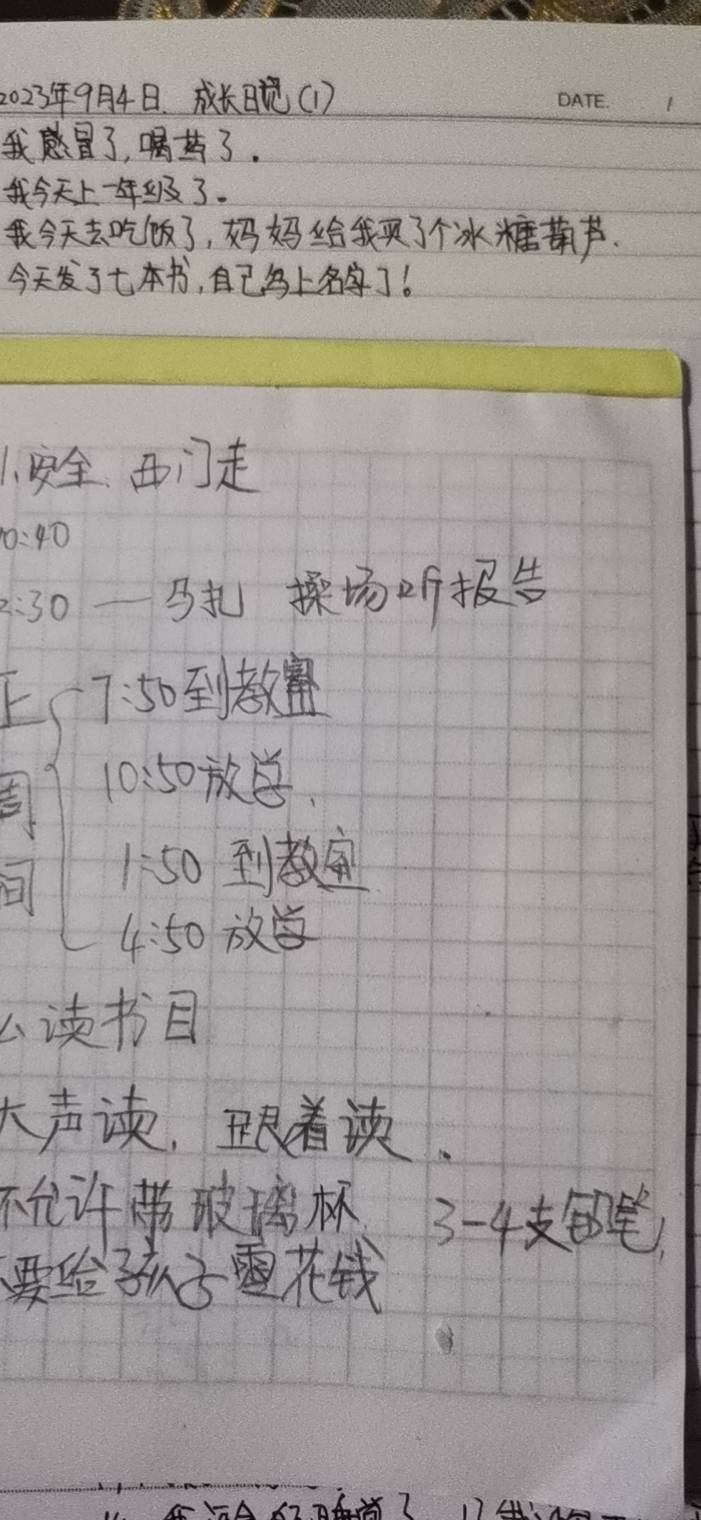 2023年9月4日. 成长日记(1)
DATE. /
我感冒了,喝药了.
我今天上一年级了.
我今天去吃饭了,妈妈给我买了个冰糖葫芦.
今天发了七本书,自己写上名字了!
1.安全. 西门走
10:40
2:30 — 马扎 操场听报告
上周间
7:50到教室
10:50放学.
1:50 到教室
4:50 放学
读书目
大声读, 跟着读.
不允许带玻璃杯. 3-4支铅笔,
要给孩子零花钱